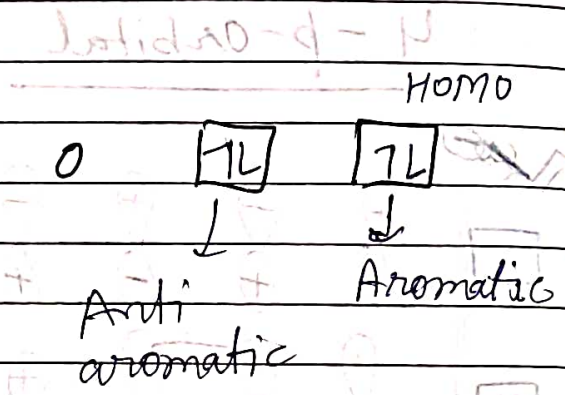 HOMO
0 1L 1L
↓ ↓
Anti Aromatic
aromatic